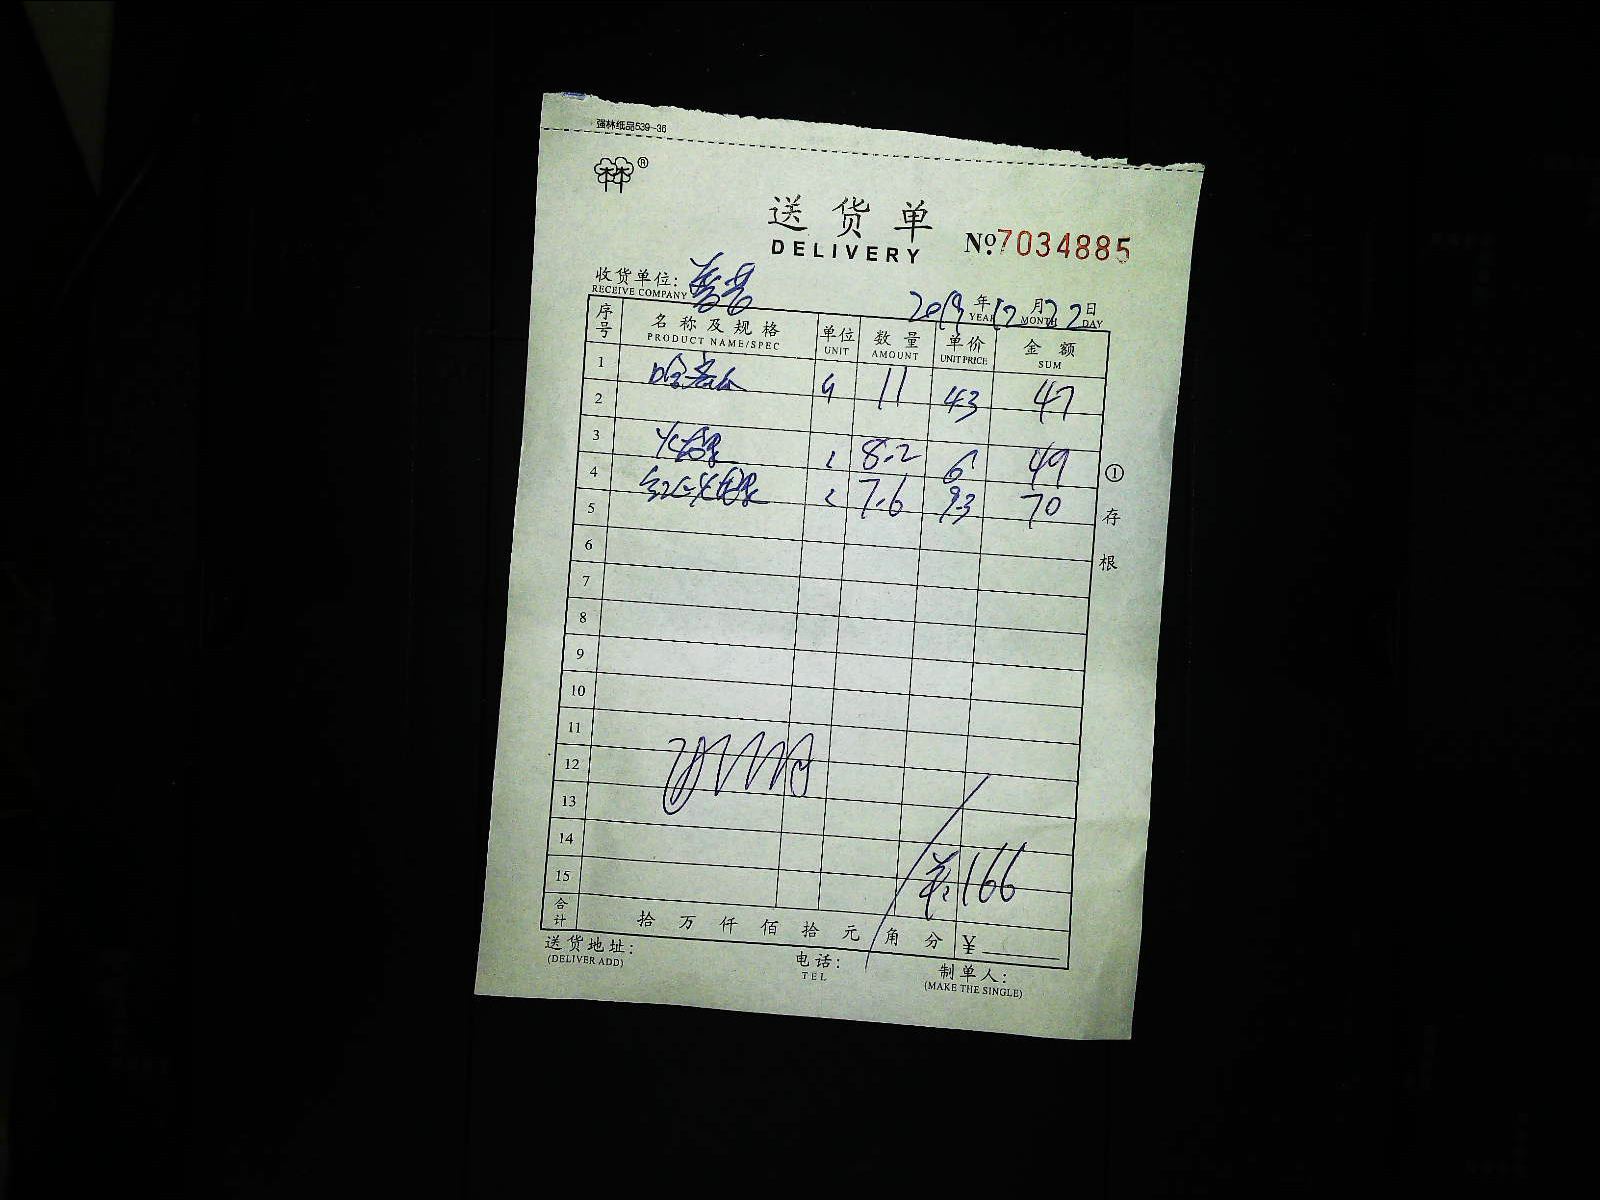 强林纸品539-36
®
送货单
DELIVERY № 7034885
收货单位:
RECEIVE COMPANY
2019 年 12 月 22 日
YEAR MONTH DAY
序号 名称及规格 单位 数量 单价 金额
PRODUCT NAME/SPEC UNIT AMOUNT UNIT PRICE SUM
1 哈密瓜 11 4.3 47
2
3 火龙果 8.2 6 49
4 红心火龙果 7.6 9.3 70
5
6
7
8
9
10
11
12
13
14
15 166
合计 拾 万 仟 佰 拾 元 角 分 ¥
① 存根
送货地址: 电话: 制单人:
(DELIVER ADD) TEL (MAKE THE SINGLE)